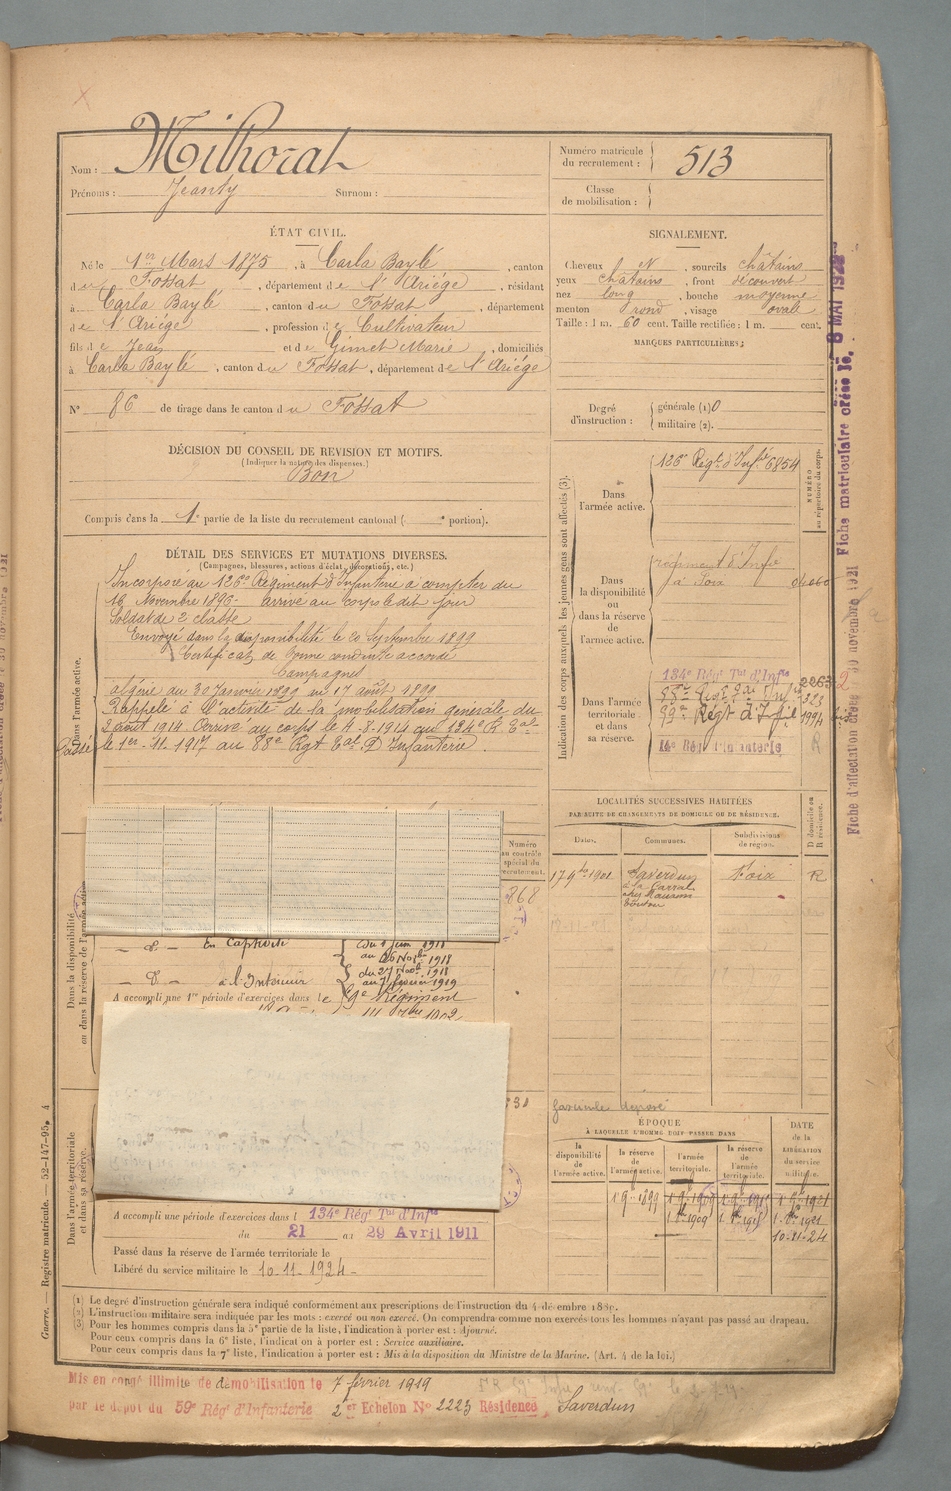 Nom : Milhorat
Prénoms : Jeanty Surnom :
Numéro matricule du recrutement : 513
Classe de mobilisation :
ÉTAT CIVIL.
Né le 1er Mars 1875, à Carla Baylé, canton
du Fossat, département de l'Ariége, résidant
à Carla Baylé, canton du Fossat, département
de l'Ariége, profession de Cultivateur
fils de Jean et de Gimet Marie, domiciliés
à Carla Baylé, canton du Fossat, département de l'Ariége
N° 86 de tirage dans le canton du Fossat
SIGNALEMENT.
Cheveux N, sourcils châtains
yeux châtains, front découvert
nez long, bouche moyenne
menton rond, visage ovale
Taille : 1 m. 60 cent. Taille rectifiée : 1 m. cent.
MARQUES PARTICULIÈRES :
Degré d'instruction : générale (1) 0
militaire (2).
DÉCISION DU CONSEIL DE REVISION ET MOTIFS.
(Indiquer la nature des dispenses.)
Bon
Compris dans la 1e partie de la liste du recrutement cantonal ( e portion).
DÉTAIL DES SERVICES ET MUTATIONS DIVERSES.
(Campagnes, blessures, actions d'éclat, décorations, etc.)
Dans l'armée active.
Incorporé au 126e Régiment d'Infanterie à compter du
16 Novembre 1896. arrivé au corps le dit jour
Soldat de 2e classe
Envoyé dans la disponibilité le 20 Septembre 1899
Certificat de bonne conduite accordé
Campagne
algérie du 30 Janvier 1899 au 17 août 1899
Rappelé à l'activité de la mobilisation générale du
2 août 1914. Arrivé au corps le 4-8-1914 au 134e R. Eal.
Passé le 1er-11-1917 au 88e Rgt Eal D'Infanterie.
Indication des corps auxquels les jeunes gens sont affectés (3).
NUMÉRO au répertoire du corps.
Dans l'armée active.
126e Régt d'Infie 6854
Dans la disponibilité ou dans la réserve de l'armée active.
régiment d'Infie
à Foix
Dans l'armée territoriale et dans sa réserve.
134e Régt Tal d'Infie 2263
323
Régt d'Infie 1994
14e Rég d'Infanterie R
LOCALITÉS SUCCESSIVES HABITÉES
PAR SUITE DE CHANGEMENTS DE DOMICILE OU DE RÉSIDENCE.
Dates. Communes. Subdivisions de région. D domicile ou R résidence.
17 9bre 1901 Saverdun Foix R
Dans la disponibilité ou dans la réserve de l'armée active
Numéro au contrôle spécial du recrutement.
868
— d° — En Captivité
au 26 Novbre 1918
— d° — à l'Intérieur du 27 Novb 1918
au 7 février 1919
A accompli une 1re période d'exercices dans le 59e Régiment
Dans l'armée territoriale et dans sa réserve.
A accompli une période d'exercices dans l 134e Régt Tal d'Infie
du 21 au 29 Avril 1911
Passé dans la réserve de l'armée territoriale le
Libéré du service militaire le 10-11-1924-
fascicule déposé
ÉPOQUE
À LAQUELLE L'HOMME DOIT PASSER DANS
la disponibilité de l'armée active.
la réserve de l'armée active.
l'armée territoriale.
la réserve de l'armée territoriale.
DATE de la LIBÉRATION du service militaire.
1 9bre 1899 1 9bre 1909 1 9bre 1915 1 9bre 1921
10-11-24
(1) Le degré d'instruction générale sera indiqué conformément aux prescriptions de l'instruction du 4 décembre 1889.
(2) L'instruction militaire sera indiquée par les mots : exercé ou non exercé. On comprendra comme non exercés tous les hommes n'ayant pas passé au drapeau.
(3) Pour les hommes compris dans la 5e partie de la liste, l'indication à porter est : Ajourné.
Pour ceux compris dans la 6e liste, l'indication à porter est : Service auxiliaire.
Pour ceux compris dans la 7e liste, l'indication à porter est : Mis à la disposition du Ministre de la Marine. (Art. 4 de la loi.)
Mis en congé illimité de démobilisation le 7 février 1919
par le dépôt du 59e Rég d'Infanterie 2e Echelon N° 2223 Résidence, Saverdun
Guerre. — Registre matricule. — 52-147-95. 4
Fiche matriculaire créée le. 8 MAI 192
Fiche d'affectation créée le 30 novembre 1921